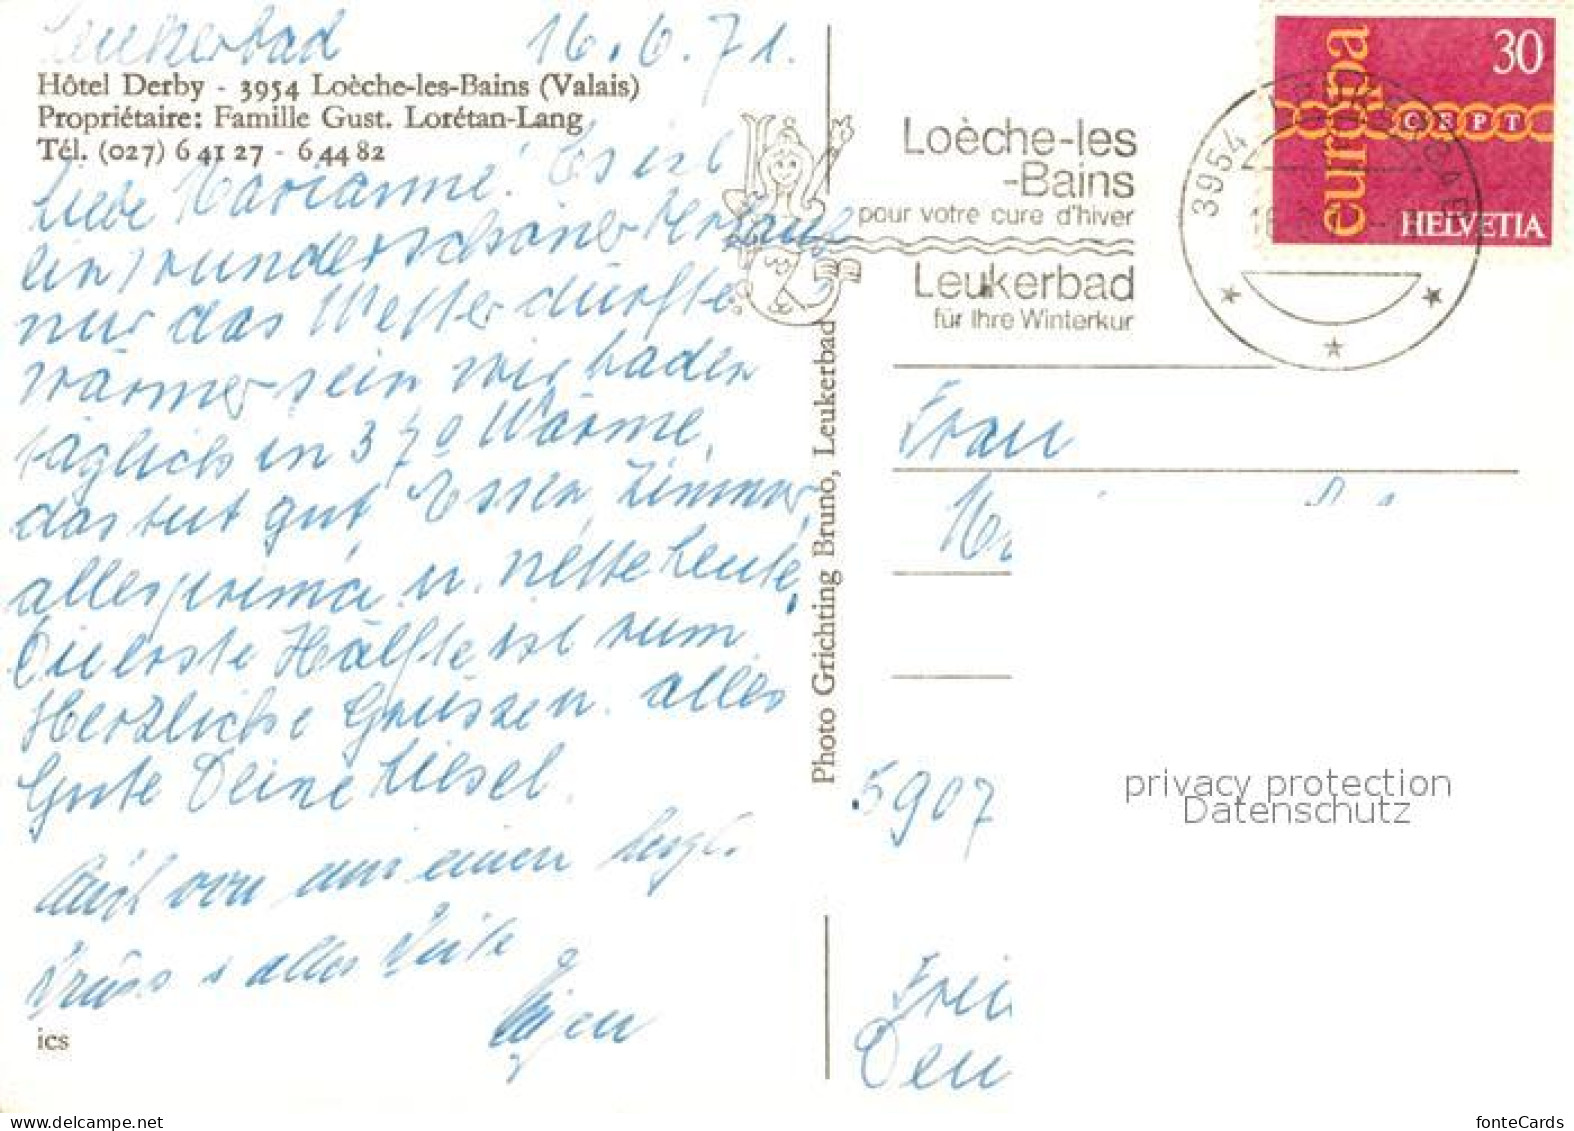 Leukerbad 16.6.71.
Hôtel Derby - 3954 Loèche-les-Bains (Valais)
Propriétaire: Famille Gust. Lorétan-Lang
Tél. (027) 6 41 27 - 6 44 82
Liebe Marianne! Es ist
ein wunderschöner Urlaub
nur das Wetter dürfte
wärmer sein wir baden
täglich in 37° Wärme,
das tut gut, Essen, Zimmer,
alles prima u. nette Leute,
Die erste Hälfte ist rum
Herzliche Grüsse u. alles
Gute Deine Liesel.
Auch von mir einen herzl.
Gruss + alles Gute
Eugen
ics
Photo Grichting Bruno, Leukerbad
Loèche-les
-Bains
pour votre cure d'hiver
Leukerbad
für Ihre Winterkur
3954
europa
30
CEPT
HELVETIA
Frau
5907
privacy protection
Datenschutz
www.delcampe.net
fonteCards